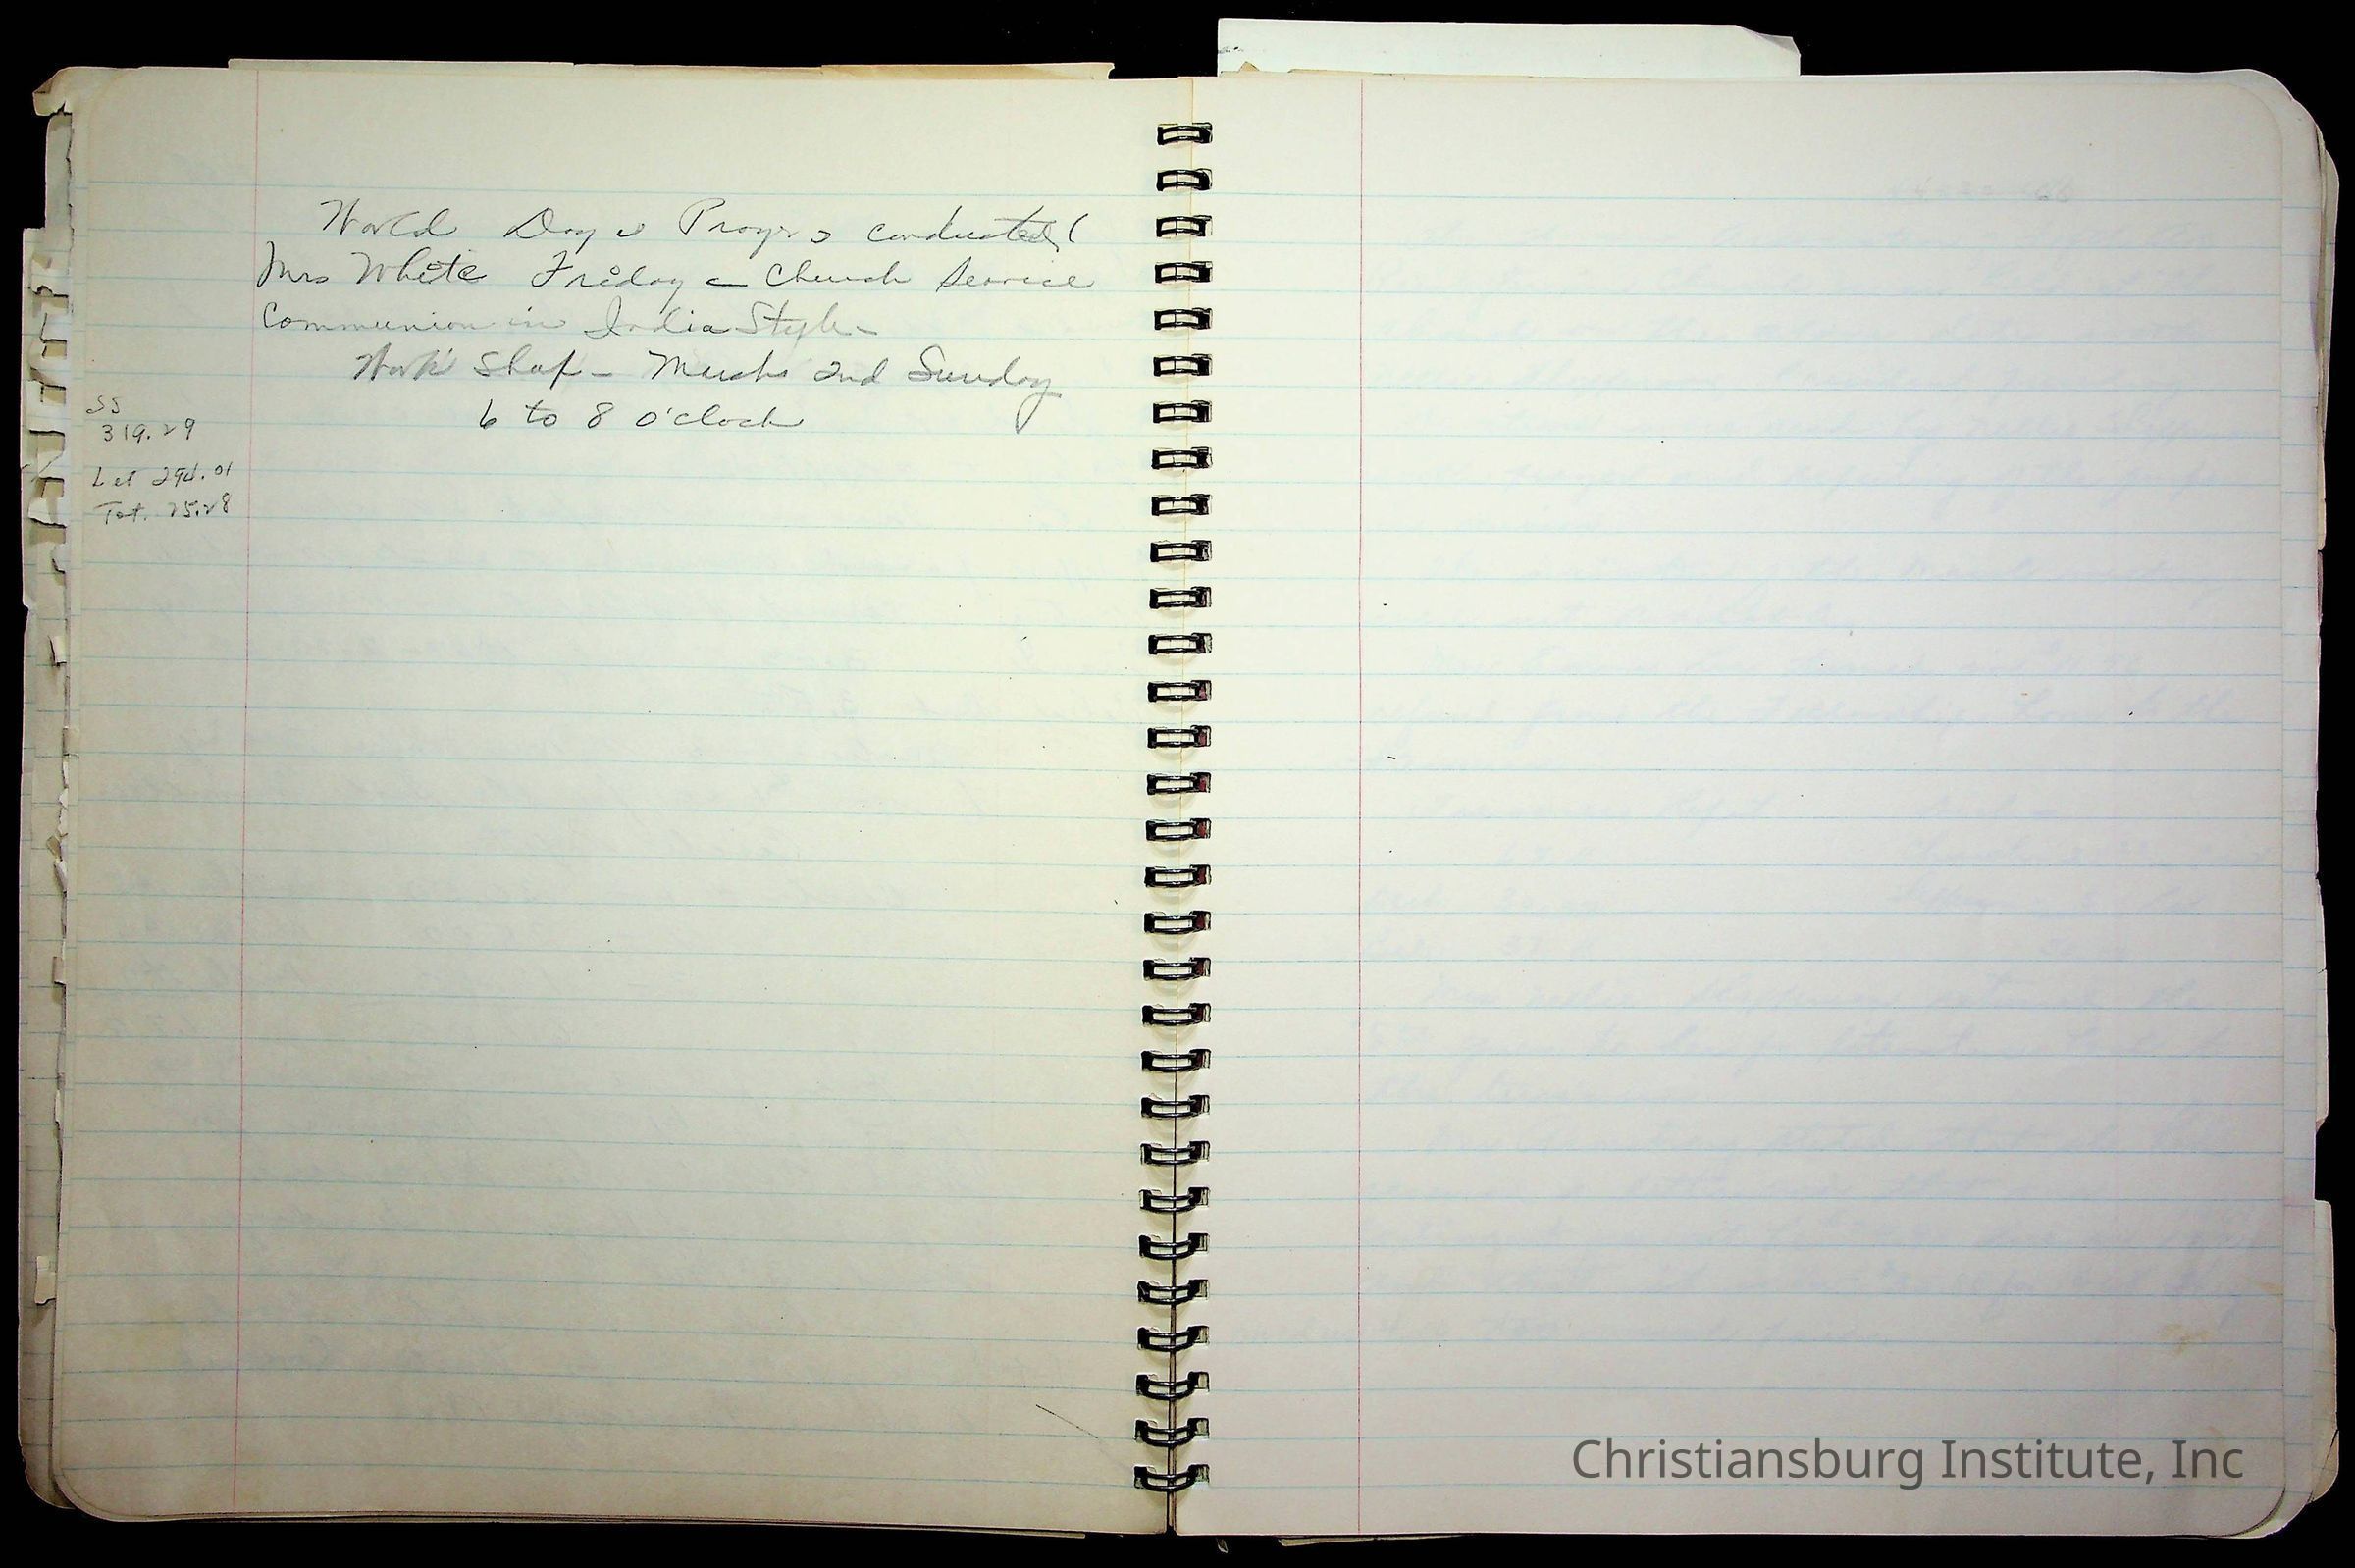 World Day Prayer conducted
Mrs White Friday - Church Service
Communion in India Style -
Work Shop - March 2nd Sunday
6 to 8 o'clock
SS
319.29
Let 294.01
Tot. 25.28
Christiansburg Institute, Inc